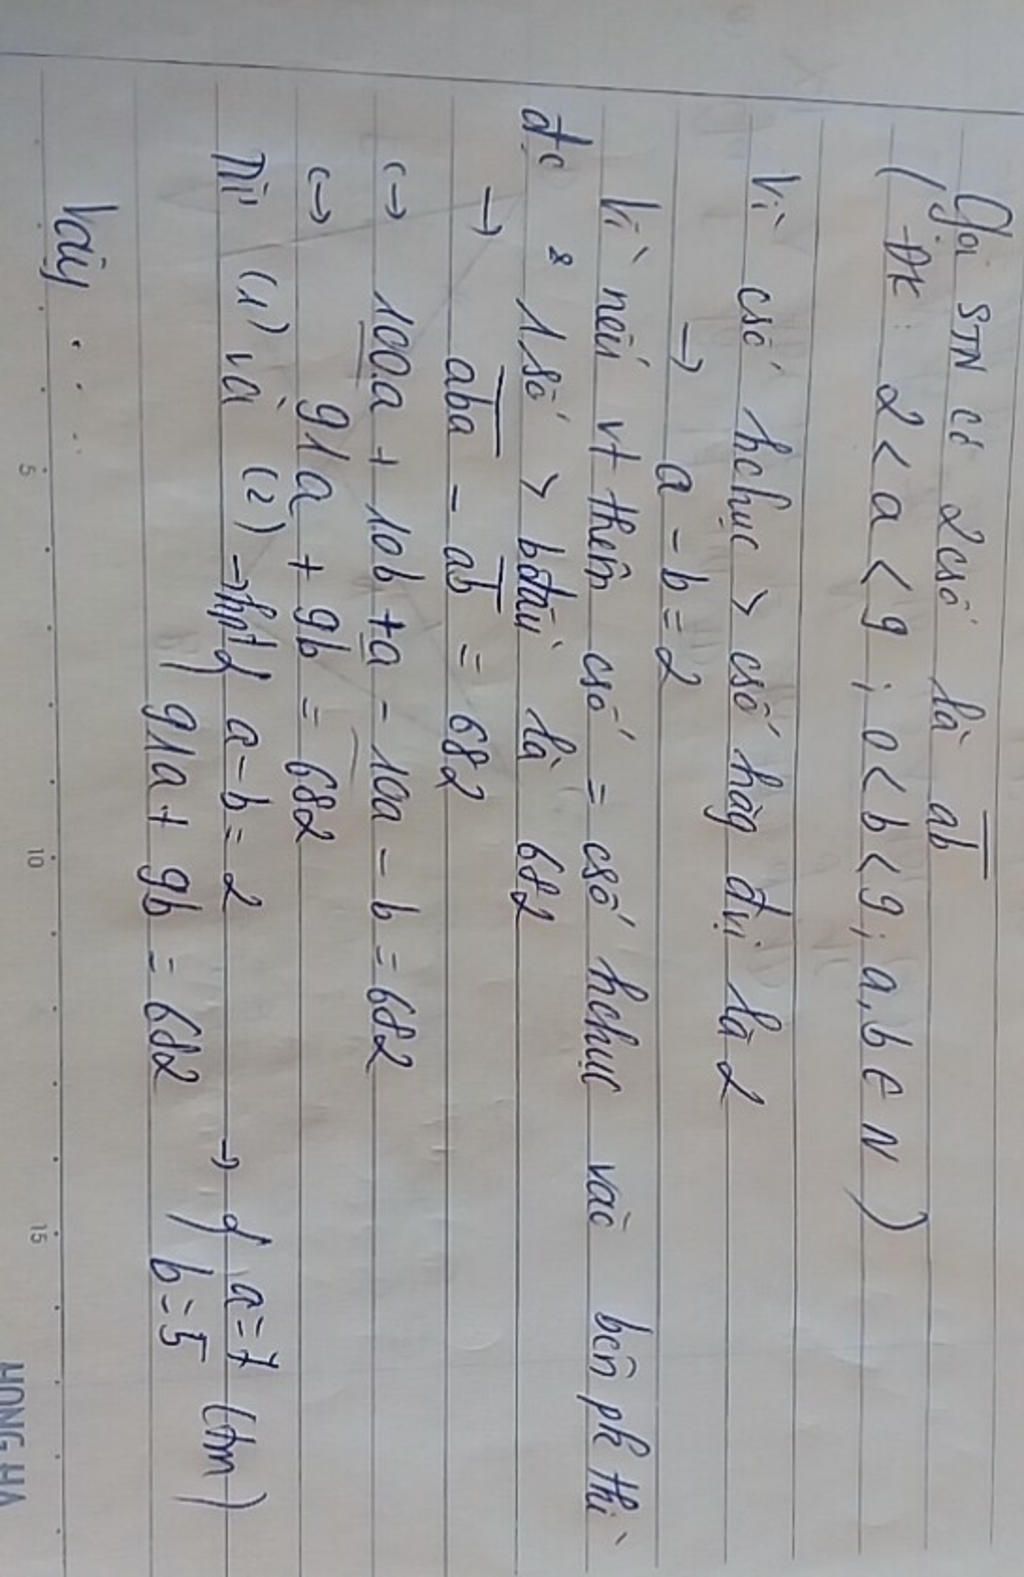 Gọi STN có 2csố là ab
( ĐK: 2 < a < 9 ; 0 < b < 9; a, b ∈ N )
Vì csố hchục > csố hàg đvị là 2
→ a - b = 2
Vì nếu vt thêm csố = csố hchục vào bên ph thì
đc 1 số > bđầu là 682
→ aba - ab = 682
↔ 100a + 10b + a - 10a - b = 682
↔ 91a + 9b = 682
Từ (1) và (2) → hpt { a - b = 2 → { a = 7 (tm)
91a + 9b = 682 b = 5
Vậy ....
5 10 15
HONG HA